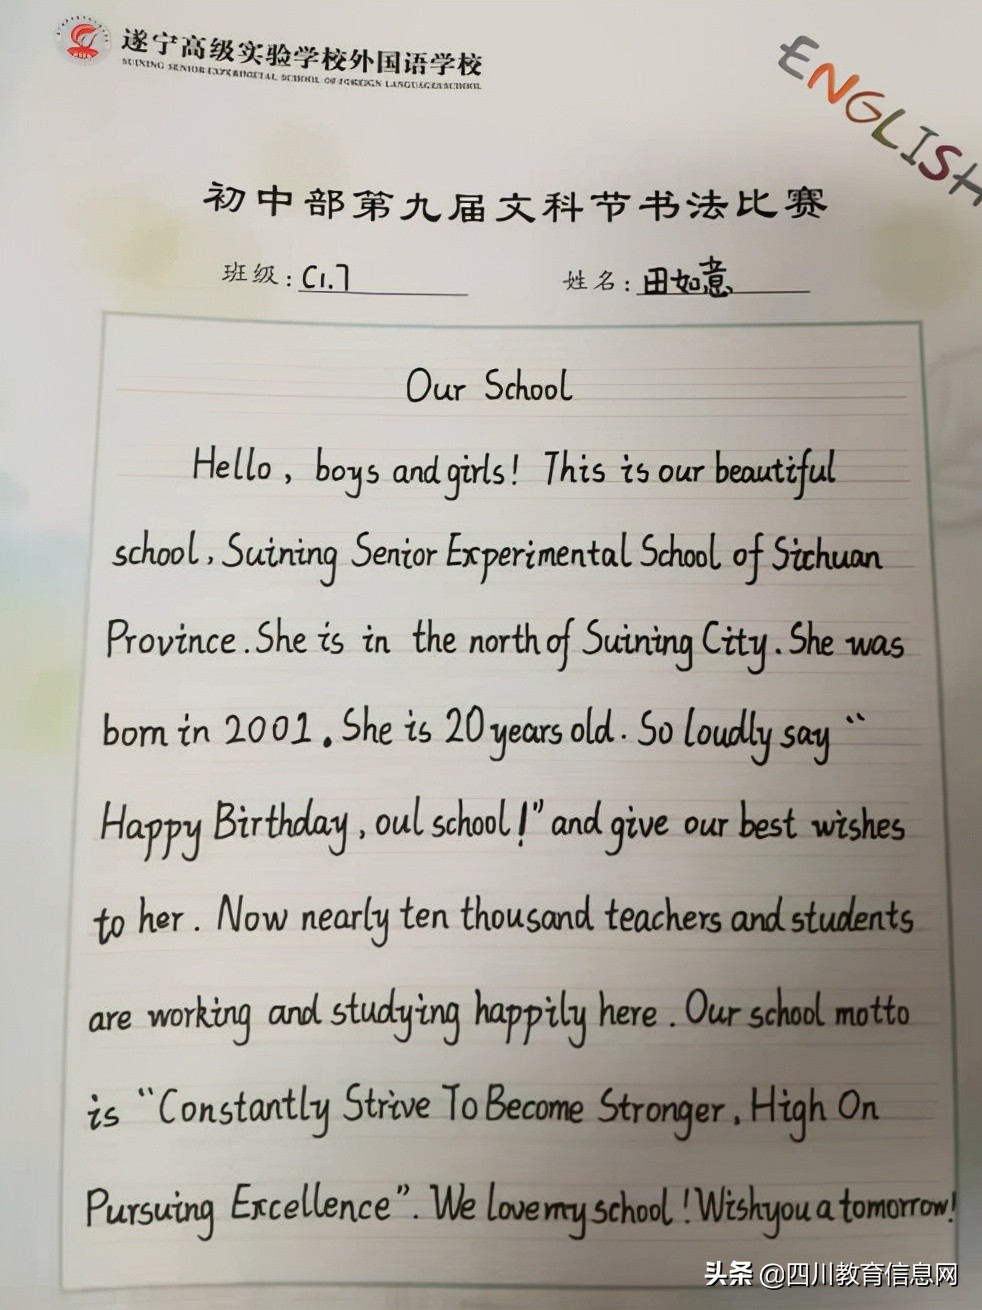 遂宁高级实验学校外国语学校
SUINING SENIOR EXPERIMETAL SCHOOL OF FOREIGN LANGUAGES SCHOOL
ENGLISH
初中部第九届文科节书法比赛
班级：C1.7 姓名：田如意
Our School
Hello, boys and girls! This is our beautiful
school, Suining Senior Experimental School of Sichuan
Province. She is in the north of Suining City. She was
born in 2001. She is 20 years old. So loudly say “
Happy Birthday, oul school!” and give our best wishes
to her. Now nearly ten thousand teachers and students
are working and studying happily here. Our school motto
is “Constantly Strive To Become Stronger, High On
Pursuing Excellence”. We love my school! Wish you a tomorrow!
头条 @四川教育信息网